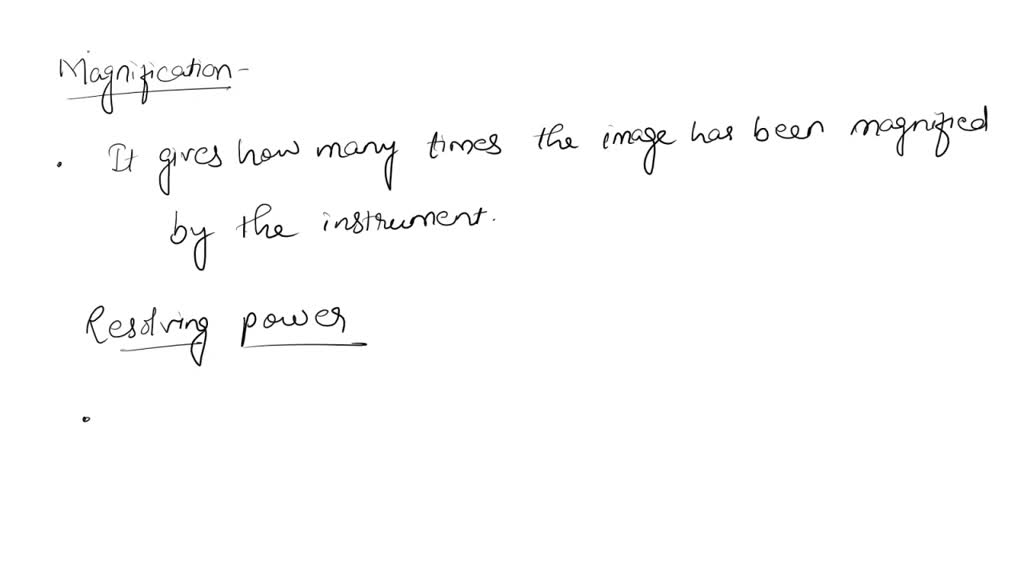 Magnification -
. It gives how many times the image has been magnified
by the instrument.
Resolving power
.